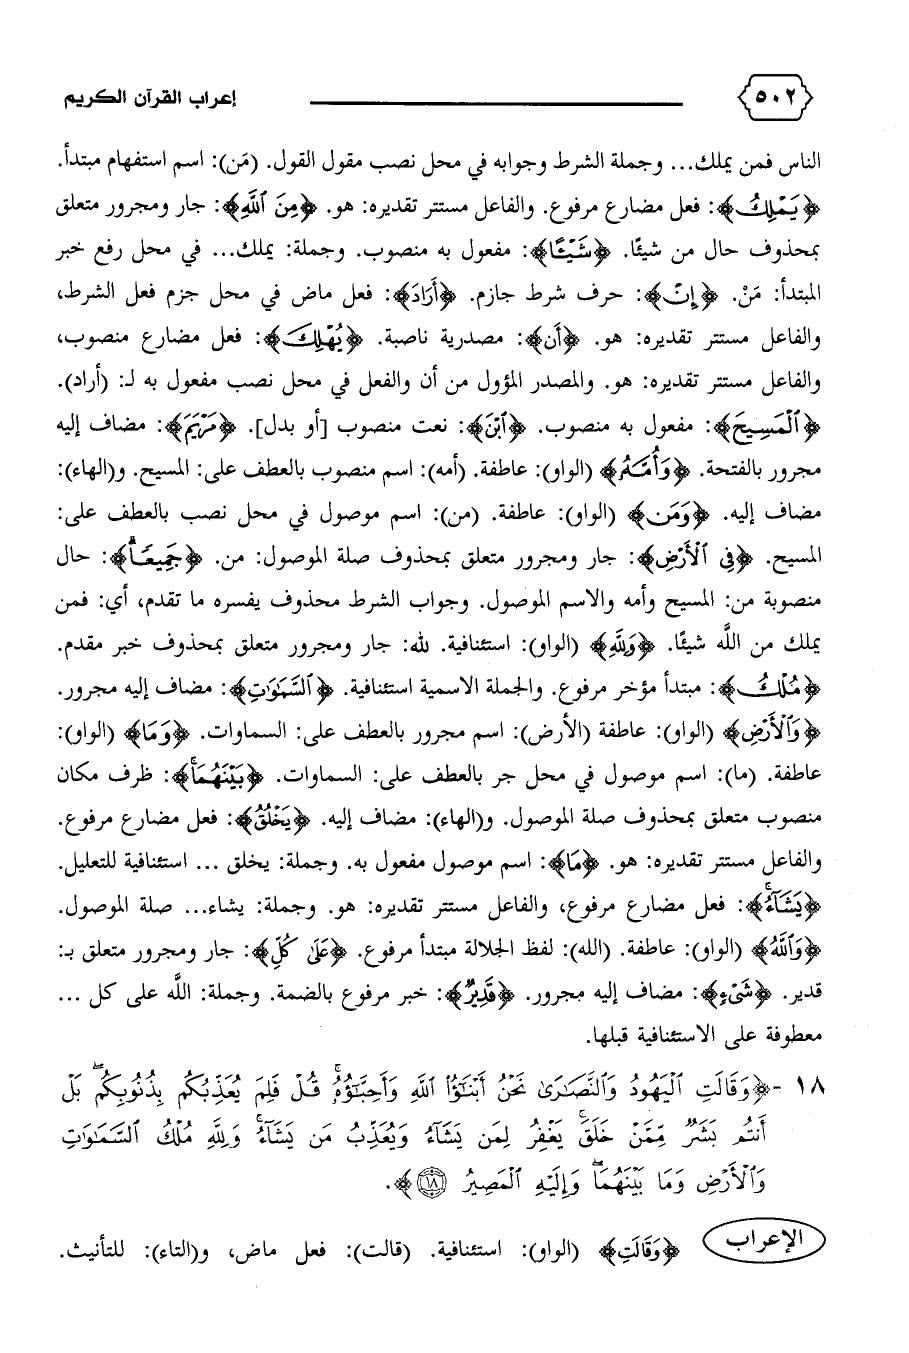 ٥٠٢ إعراب القرآن الكريم
الناس فمن يملك... وجملة الشرط وجوابه في محل نصب مقول القول. (مَن): اسم استفهام مبتدأ.
﴿يَمْلِكُ﴾: فعل مضارع مرفوع. والفاعل مستتر تقديره: هو. ﴿مِنَ ٱللَّهِ﴾: جار ومجرور متعلق
بمحذوف حال من شيئًا. ﴿شَيْـًٔا﴾: مفعول به منصوب. وجملة: يملك... في محل رفع خبر
المبتدأ: مَنْ. ﴿إِنْ﴾: حرف شرط جازم. ﴿أَرَادَ﴾: فعل ماض في محل جزم فعل الشرط،
والفاعل مستتر تقديره: هو. ﴿أَن﴾: مصدرية ناصبة. ﴿يُهْلِكَ﴾: فعل مضارع منصوب،
والفاعل مستتر تقديره: هو. والمصدر المؤول من أن والفعل في محل نصب مفعول به لـ: (أراد).
﴿ٱلْمَسِيحَ﴾: مفعول به منصوب. ﴿ٱبْنَ﴾: نعت منصوب [أو بدل]. ﴿مَرْيَمَ﴾: مضاف إليه
مجرور بالفتحة. ﴿وَأُمَّهُۥ﴾ (الواو): عاطفة. (أمه): اسم منصوب بالعطف على: المسيح. و(الهاء):
مضاف إليه. ﴿وَمَن﴾ (الواو): عاطفة. (من): اسم موصول في محل نصب بالعطف على:
المسيح. ﴿فِى ٱلْأَرْضِ﴾: جار ومجرور متعلق بمحذوف صلة الموصول: من. ﴿جَمِيعًاۗ﴾: حال
منصوبة من: المسيح وأمه والاسم الموصول. وجواب الشرط محذوف يفسره ما تقدم، أي: فمن
يملك من اللَّه شيئًا. ﴿وَلِلَّهِ﴾ (الواو): استئنافية. لله: جار ومجرور متعلق بمحذوف خبر مقدم.
﴿مُلْكُ﴾: مبتدأ مؤخر مرفوع. والجملة الاسمية استئنافية. ﴿ٱلسَّمَـٰوَٰتِ﴾: مضاف إليه مجرور.
﴿وَٱلْأَرْضِ﴾ (الواو): عاطفة (الأرض): اسم مجرور بالعطف على: السماوات. ﴿وَمَا﴾ (الواو):
عاطفة. (ما): اسم موصول في محل جر بالعطف على: السماوات. ﴿بَيْنَهُمَاۚ﴾: ظرف مكان
منصوب متعلق بمحذوف صلة الموصول. و(الهاء): مضاف إليه. ﴿يَخْلُقُ﴾: فعل مضارع مرفوع.
والفاعل مستتر تقديره: هو. ﴿مَا﴾: اسم موصول مفعول به. وجملة: يخلق ... استئنافية للتعليل.
﴿يَشَآءُۚ﴾: فعل مضارع مرفوع، والفاعل مستتر تقديره: هو. وجملة: يشاء... صلة الموصول.
﴿وَٱللَّهُ﴾ (الواو): عاطفة. (الله): لفظ الجلالة مبتدأ مرفوع. ﴿عَلَىٰ كُلِّ﴾: جار ومجرور متعلق بـ:
قدير. ﴿شَىْءٍ﴾: مضاف إليه مجرور. ﴿قَدِيرٌ﴾: خبر مرفوع بالضمة. وجملة: اللَّه على كل ...
معطوفة على الاستئنافية قبلها.
١٨ -﴿وَقَالَتِ ٱلْيَهُودُ وَٱلنَّصَـٰرَىٰ نَحْنُ أَبْنَـٰٓؤُا۟ ٱللَّهِ وَأَحِبَّـٰٓؤُهُۥۚ قُلْ فَلِمَ يُعَذِّبُكُم بِذُنُوبِكُمۖ بَلْ
أَنتُم بَشَرٌ مِّمَّنْ خَلَقَۚ يَغْفِرُ لِمَن يَشَآءُ وَيُعَذِّبُ مَن يَشَآءُۚ وَلِلَّهِ مُلْكُ ٱلسَّمَـٰوَٰتِ
وَٱلْأَرْضِ وَمَا بَيْنَهُمَاۖ وَإِلَيْهِ ٱلْمَصِيرُ ١٨﴾.
الإعراب ﴿وَقَالَتِ﴾ (الواو): استئنافية. (قالت): فعل ماض، و(التاء): للتأنيث.